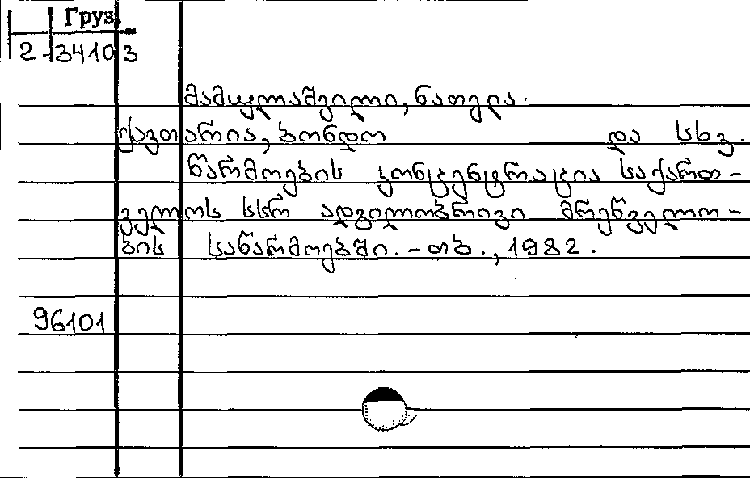 Груз.
2-34103
მამულაშვილი, ნათელა.
ქავთარია, ბონდო და სხვ.
წარმოების კონცენტრაცია საქართ-
ველოს სსრ ადგილობრივი მრეწველო-
ბის საწარმოებში. - თბ., 1982.
96101